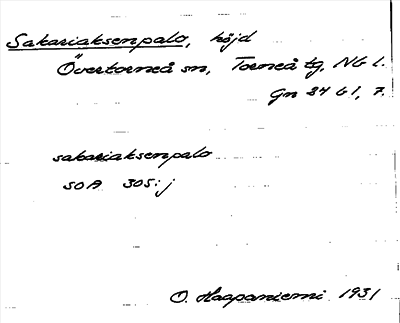 Sakariaksenpalo, höjd
Övertorneå sn, Torneå tg, NG l.
Gn 34 G1, 7.
sakariaksenpalo
SOA 305: j
O. Haapaniemi 1931